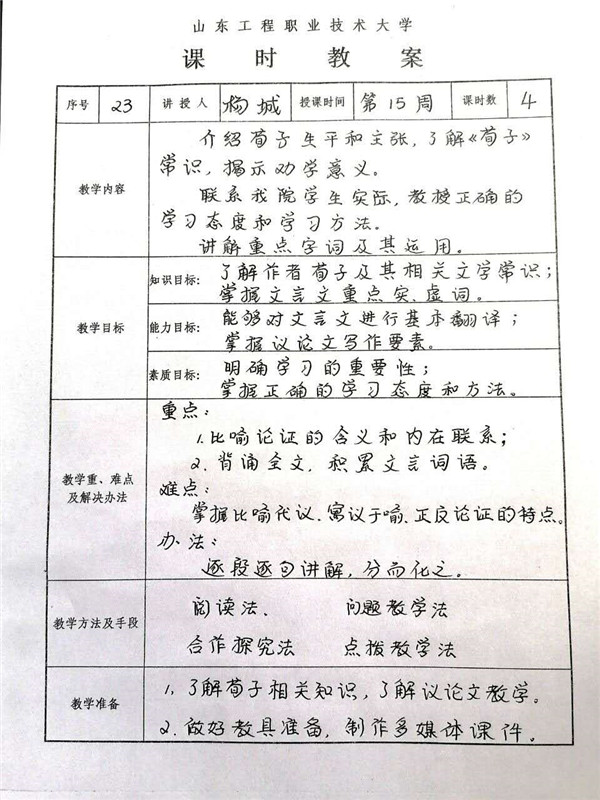 山东工程职业技术大学
课时教案
序号 23 讲授人 杨城 授课时间 第15周 课时数 4
教学内容
介绍荀子生平和主张,了解《荀子》
常识,揭示劝学意义。
联系我院学生实际,教授正确的
学习态度和学习方法。
讲解重点字词及其运用。
教学目标
知识目标: 了解作者荀子及其相关文学常识;
掌握文言文重点实、虚词。
能力目标: 能够对文言文进行基本翻译;
掌握议论文写作要素。
素质目标: 明确学习的重要性;
掌握正确的学习态度和方法。
教学重、难点
及解决办法
重点:
1.比喻论证的含义和内在联系;
2.背诵全文,积累文言词语。
难点:
掌握比喻代议、寓议于喻、正反论证的特点。
办法:
逐段逐句讲解,分而化之。
教学方法及手段
阅读法、 问题教学法
合作探究法 点拨教学法
教学准备
1.了解荀子相关知识,了解议论文教学。
2.做好教具准备,制作多媒体课件。